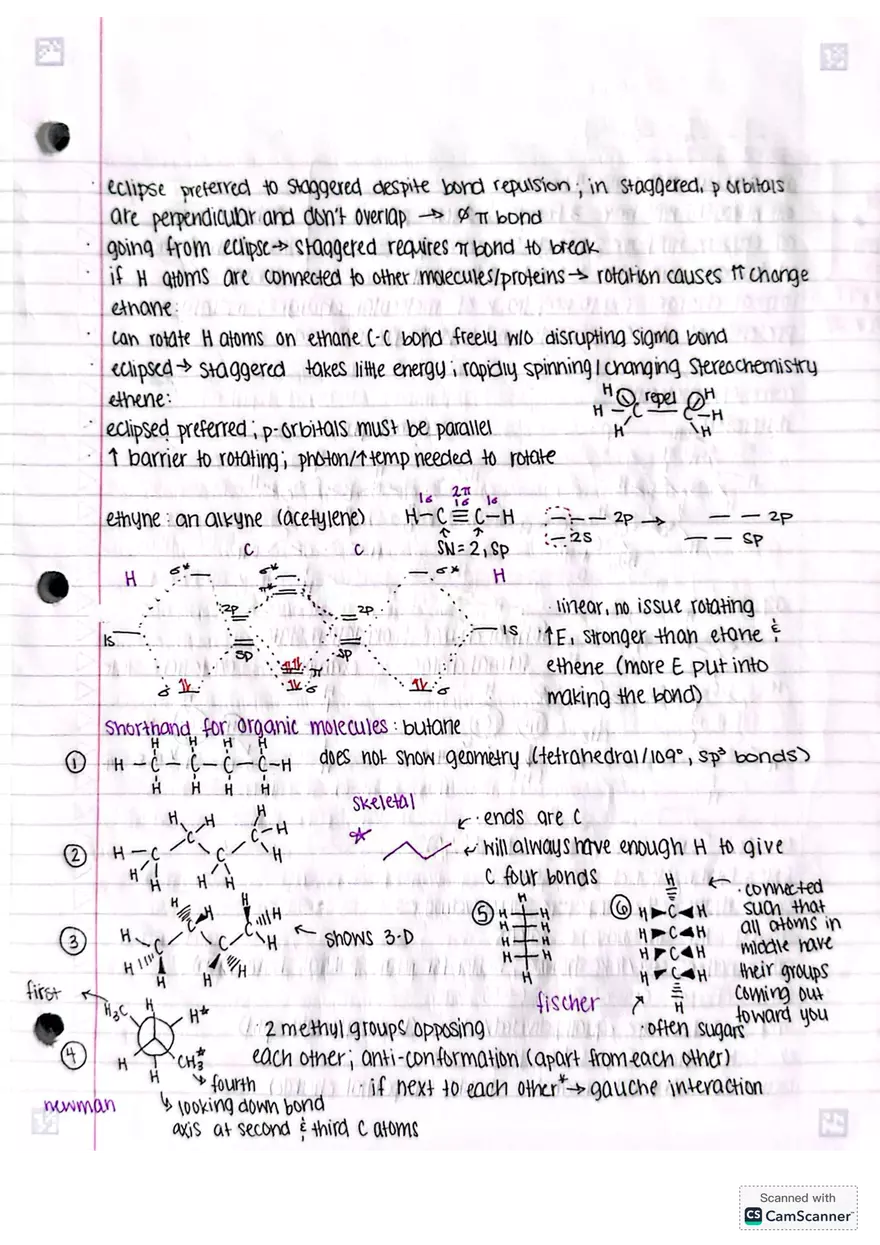 · eclipse preferred to staggered despite bond repulsion; in staggered, p orbitals
are perpendicular and don't overlap → ∅ π bond
· going from eclipse → staggered requires π bond to break
· if H atoms are connected to other molecules/proteins → rotation causes ⇈ change
ethane:
· can rotate H atoms on ethane C-C bond freely w/o disrupting sigma bond
· eclipsed → staggered takes little energy; rapidly spinning/changing stereochemistry
ethene:
H repel H
H C — C H
H H
· eclipsed preferred; p-orbitals must be parallel
· ↑ barrier to rotating; photon/↑temp needed to rotate
1σ 2π 1σ 1σ
ethyne: an alkyne (acetylene) H-C≡C-H 2p → 2p
2s sp
SN=2, sp
C C
H σ* σ* σ* H
π*
2p 2p
1s 1s
sp sp
σ π σ σ
· linear, no issue rotating
↑E, stronger than etane &
ethene (more E put into
making the bond)
shorthand for organic molecules: butane
① H H H H
H - C - C - C - C - H does not show geometry (tetrahedral/109°, sp³ bonds)
H H H H
skeletal
· ends are C
· will always have enough H to give
C four bonds
② H H H
H C C C C H
H H H H H
③ H H H H
H C C C C H
H H H H
← shows 3-D
⑤ H
H H
H H
H H
H H
H
fischer
⑥ H
H C H
H C H
H C H
H C H
H
· connected
such that
all atoms in
middle have
their groups
coming out
toward you
· often sugars
first
④ H₃C H H*
H H CH₃*
fourth
newman
looking down bond
axis at second & third C atoms
· 2 methyl groups opposing
each other; anti-conformation (apart from each other)
· if next to each other* → gauche interaction
Scanned with
CS CamScanner